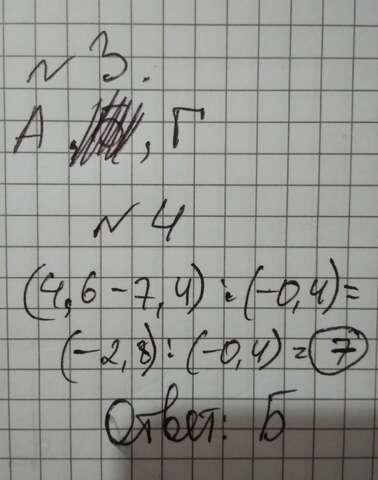 № 3.
А, , Г
№ 4
(4,6 - 7,4) : (-0,4) =
(-2,8) : (-0,4) = 7
Ответ: Б